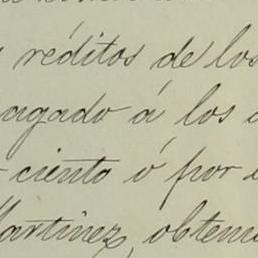 réditos de los
agado á los
ciento ó por
Martinez, obtenu